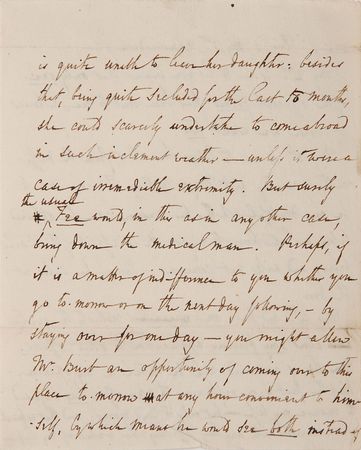 is quite unable to leave her daughter: besides
that, being quite secluded for the last 10 months,
she could scarcely undertake to come abroad
in such inclement weather — unless it were a
case of irremediable extremity. But surely
the usual
Fee would, in this as in any other case,
bring down the medical man. Perhaps, if
it is a matter of indifference to you whether you
go to-morrow or on the next day following, – by
staying over for one day – you might allow
Mr. Burt an opportunity of coming over to this
place to-morrow at any hour convenient to him-
-self, by which means he would see both instead of